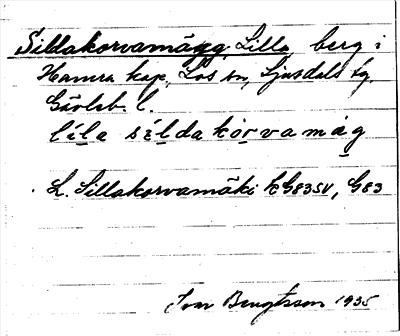 Sillakorvamägg, Lilla, berg i
Hamra kap., Los sn, Ljusdals tg.
Gävleb. l.
lila sildakorvamäg
L. Sillakorvamäki k G83SV, G83
Tom Bengtsson 1935